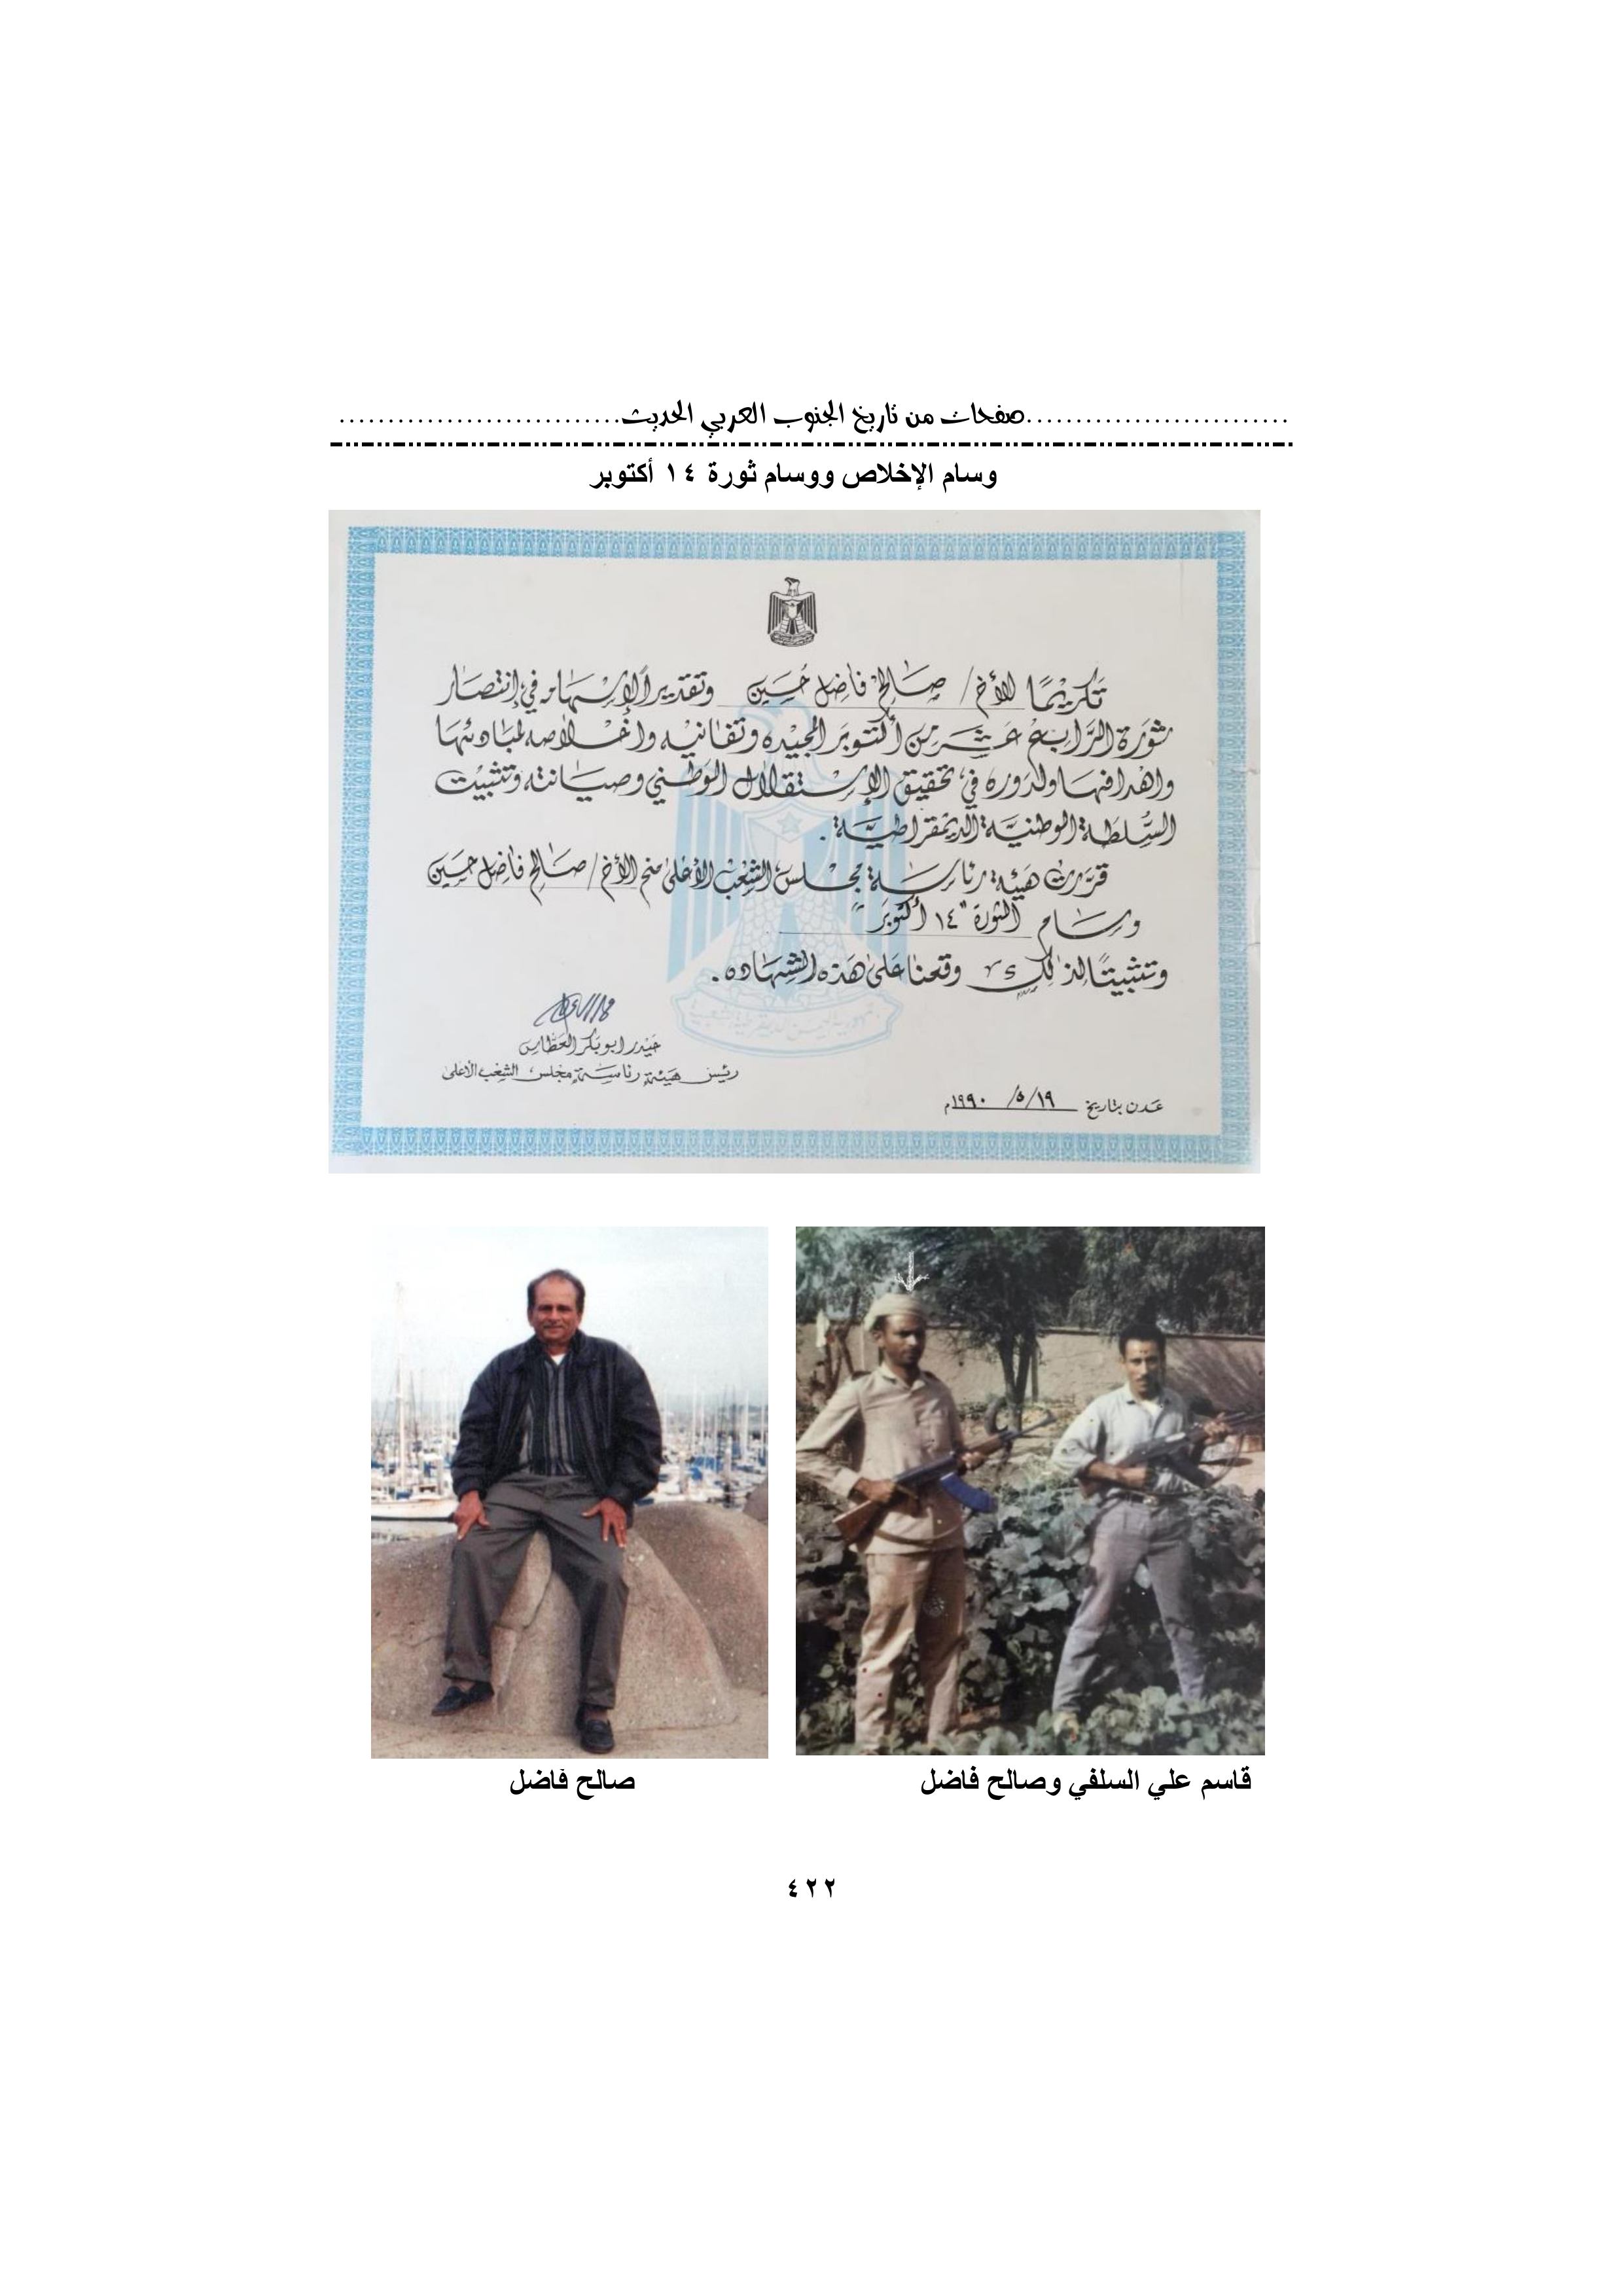 صفحات من تاريخ الجنوب العربي الحديث
وسام الإخلاص ووسام ثورة ١٤ أكتوبر
تكريمًا للأخ/ صالح فاضل حسين وتقديرًا لإسهامه في إنتصار
ثورة الرابع عشر من أكتوبر المجيده وتفانيه واخلاصه لمبادئها
واهدافها ولدوره في تحقيق الإستقلال الوطني وصيانته وتثبيت
السلطة الوطنية الديمقراطية.
قررت هيئة رئاسة مجلس الشعب الأعلى منح الأخ/ صالح فاضل حسين
وسام الثورة "١٤ أكتوبر"
وتثبيتًا لذلك وقعنا على هذه الشهاده.
حيدر ابوبكر العطاس
رئيس هيئة رئاسة مجلس الشعب الأعلى
عدن بتاريخ ١٩/٥/ ١٩٩٠م
قاسم علي السلفي وصالح فاضل
صالح فاضل
٤٢٢